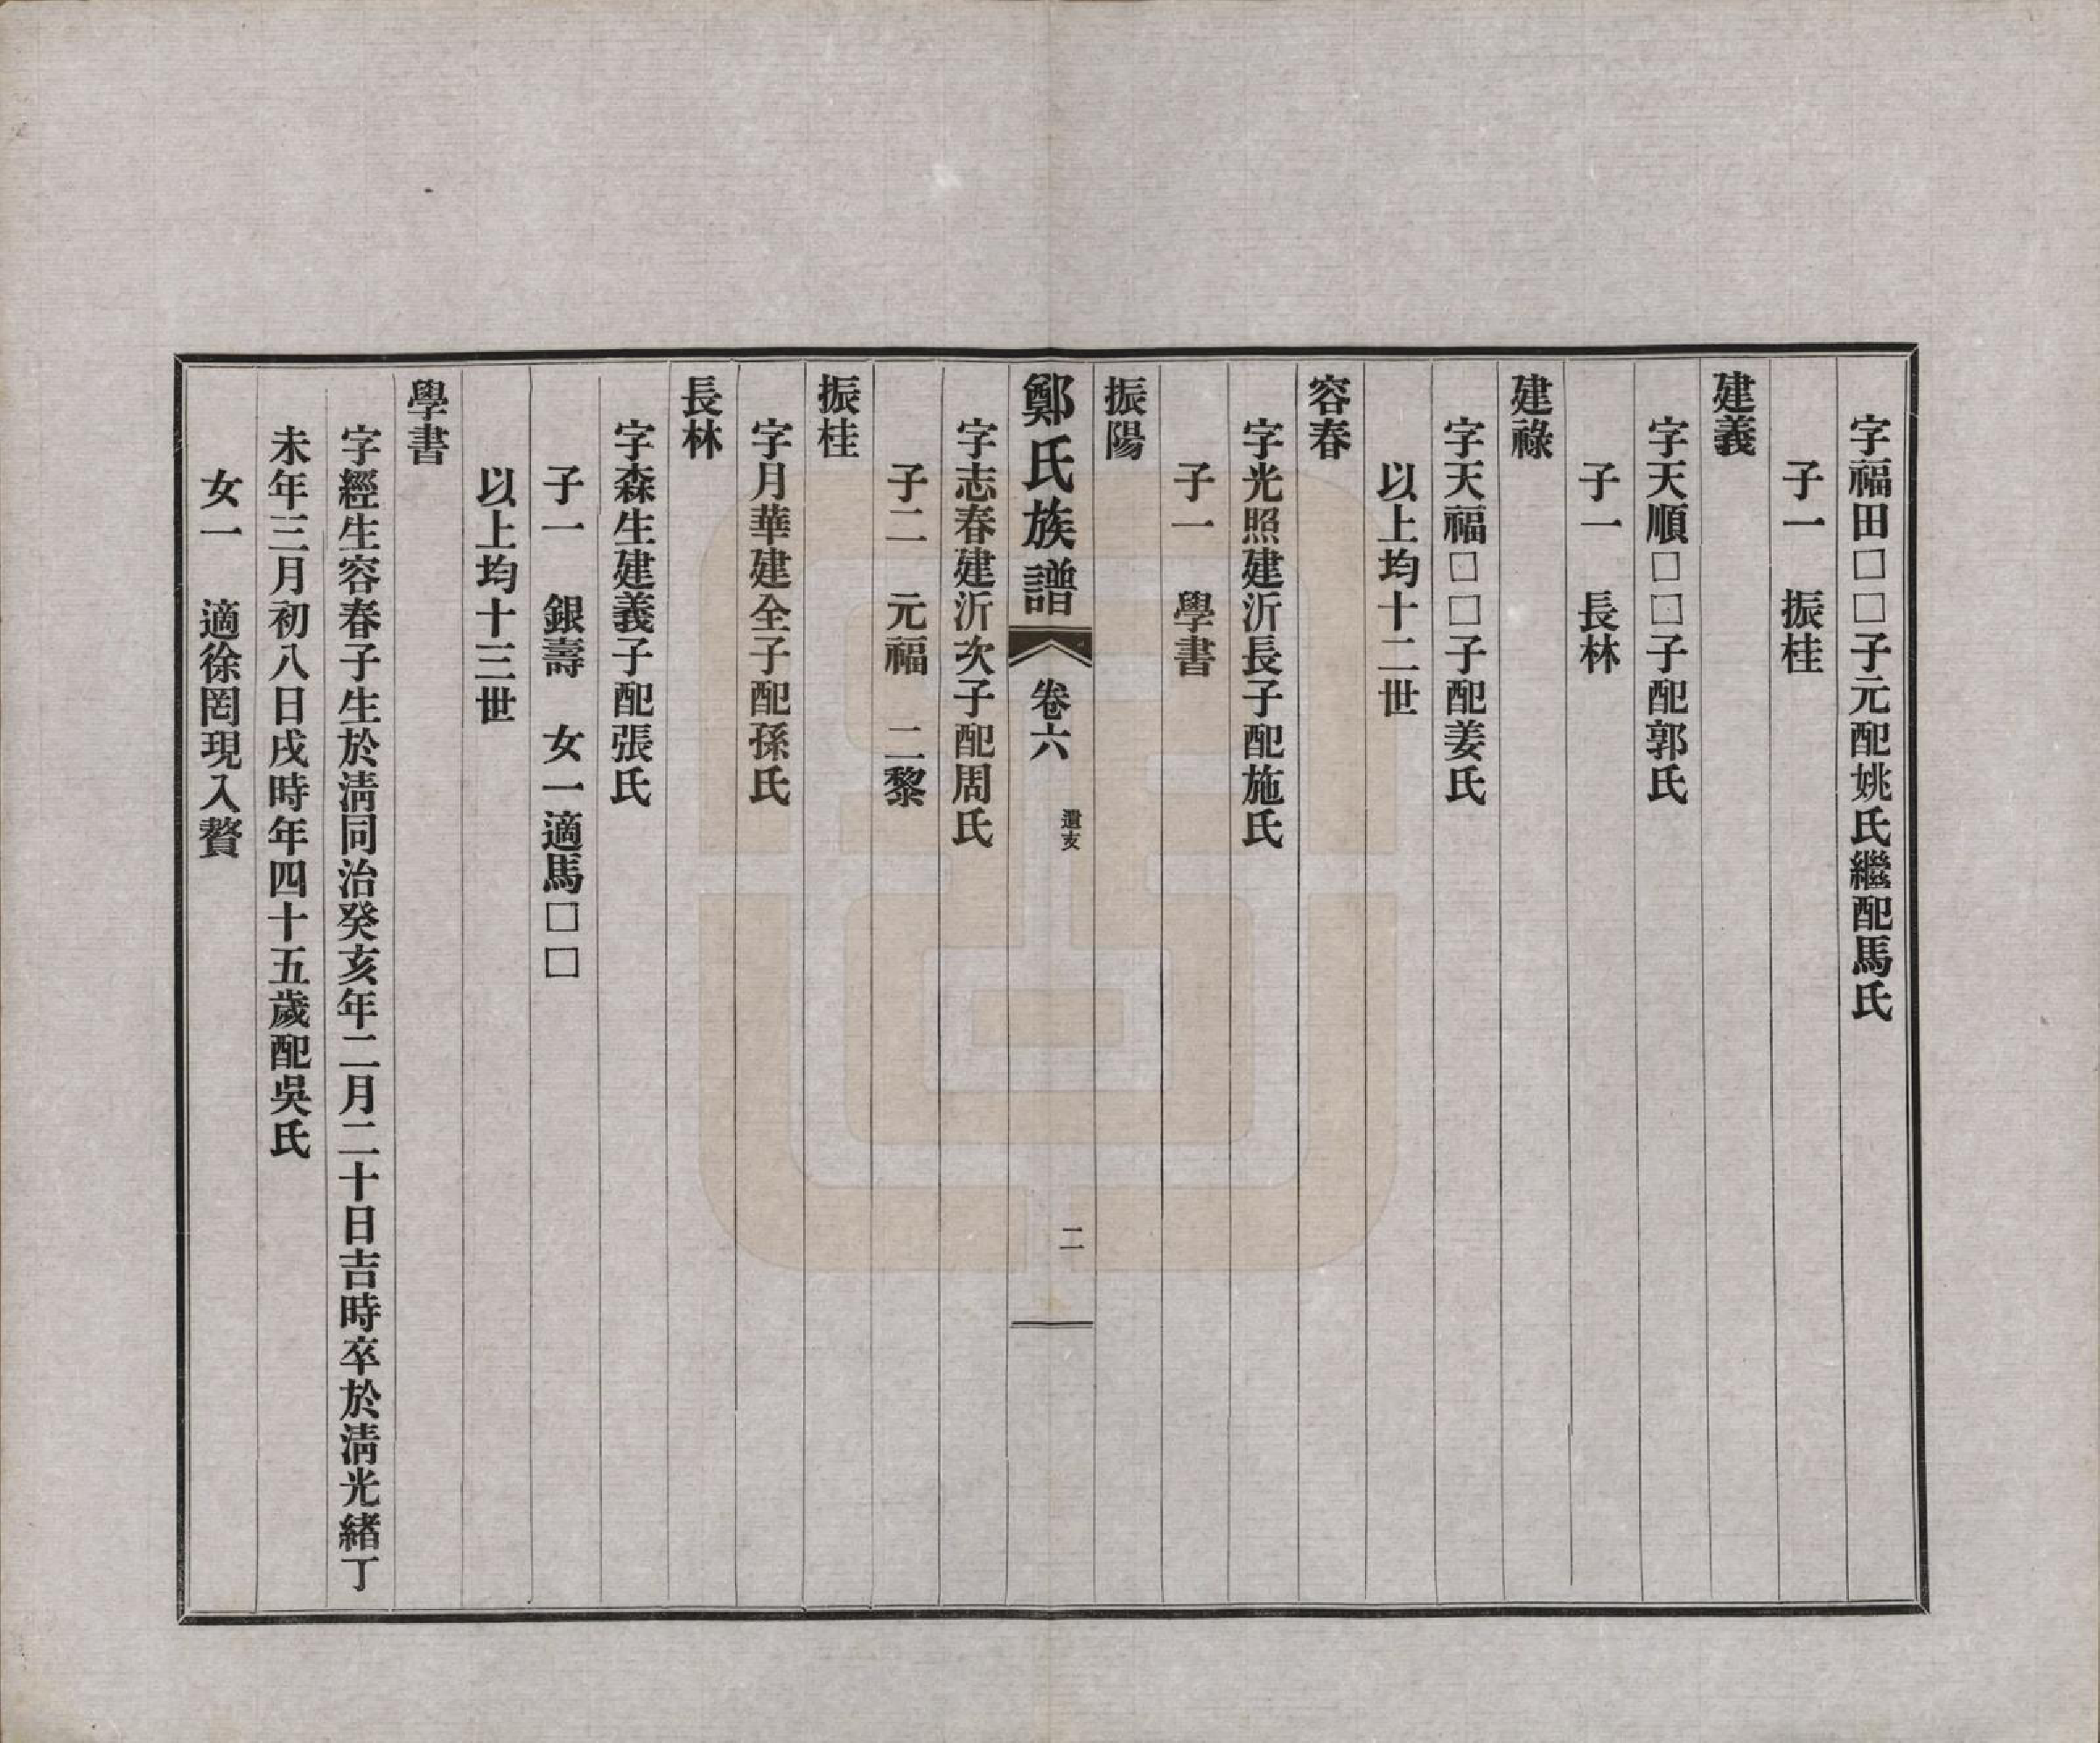 字福田□□子元配姚氏繼配馬氏
子一　振桂
建義
字天順□□子配郭氏
子一　長林
建祿
字天福□□子配姜氏
以上均十二世
容春
字光照建沂長子配施氏
子一　學書
振陽
鄭氏族譜　卷六　遺支　二
字志春建沂次子配周氏
子二　元福　二黎
振桂
字月華建全子配孫氏
長林
字森生建義子配張氏
子一　銀壽　女一適馬□□
以上均十三世
學書
字經生容春子生於清同治癸亥年二月二十日吉時卒於清光緒丁
未年三月初八日戌時年四十五歲配吳氏
女一　適徐罔現入贅